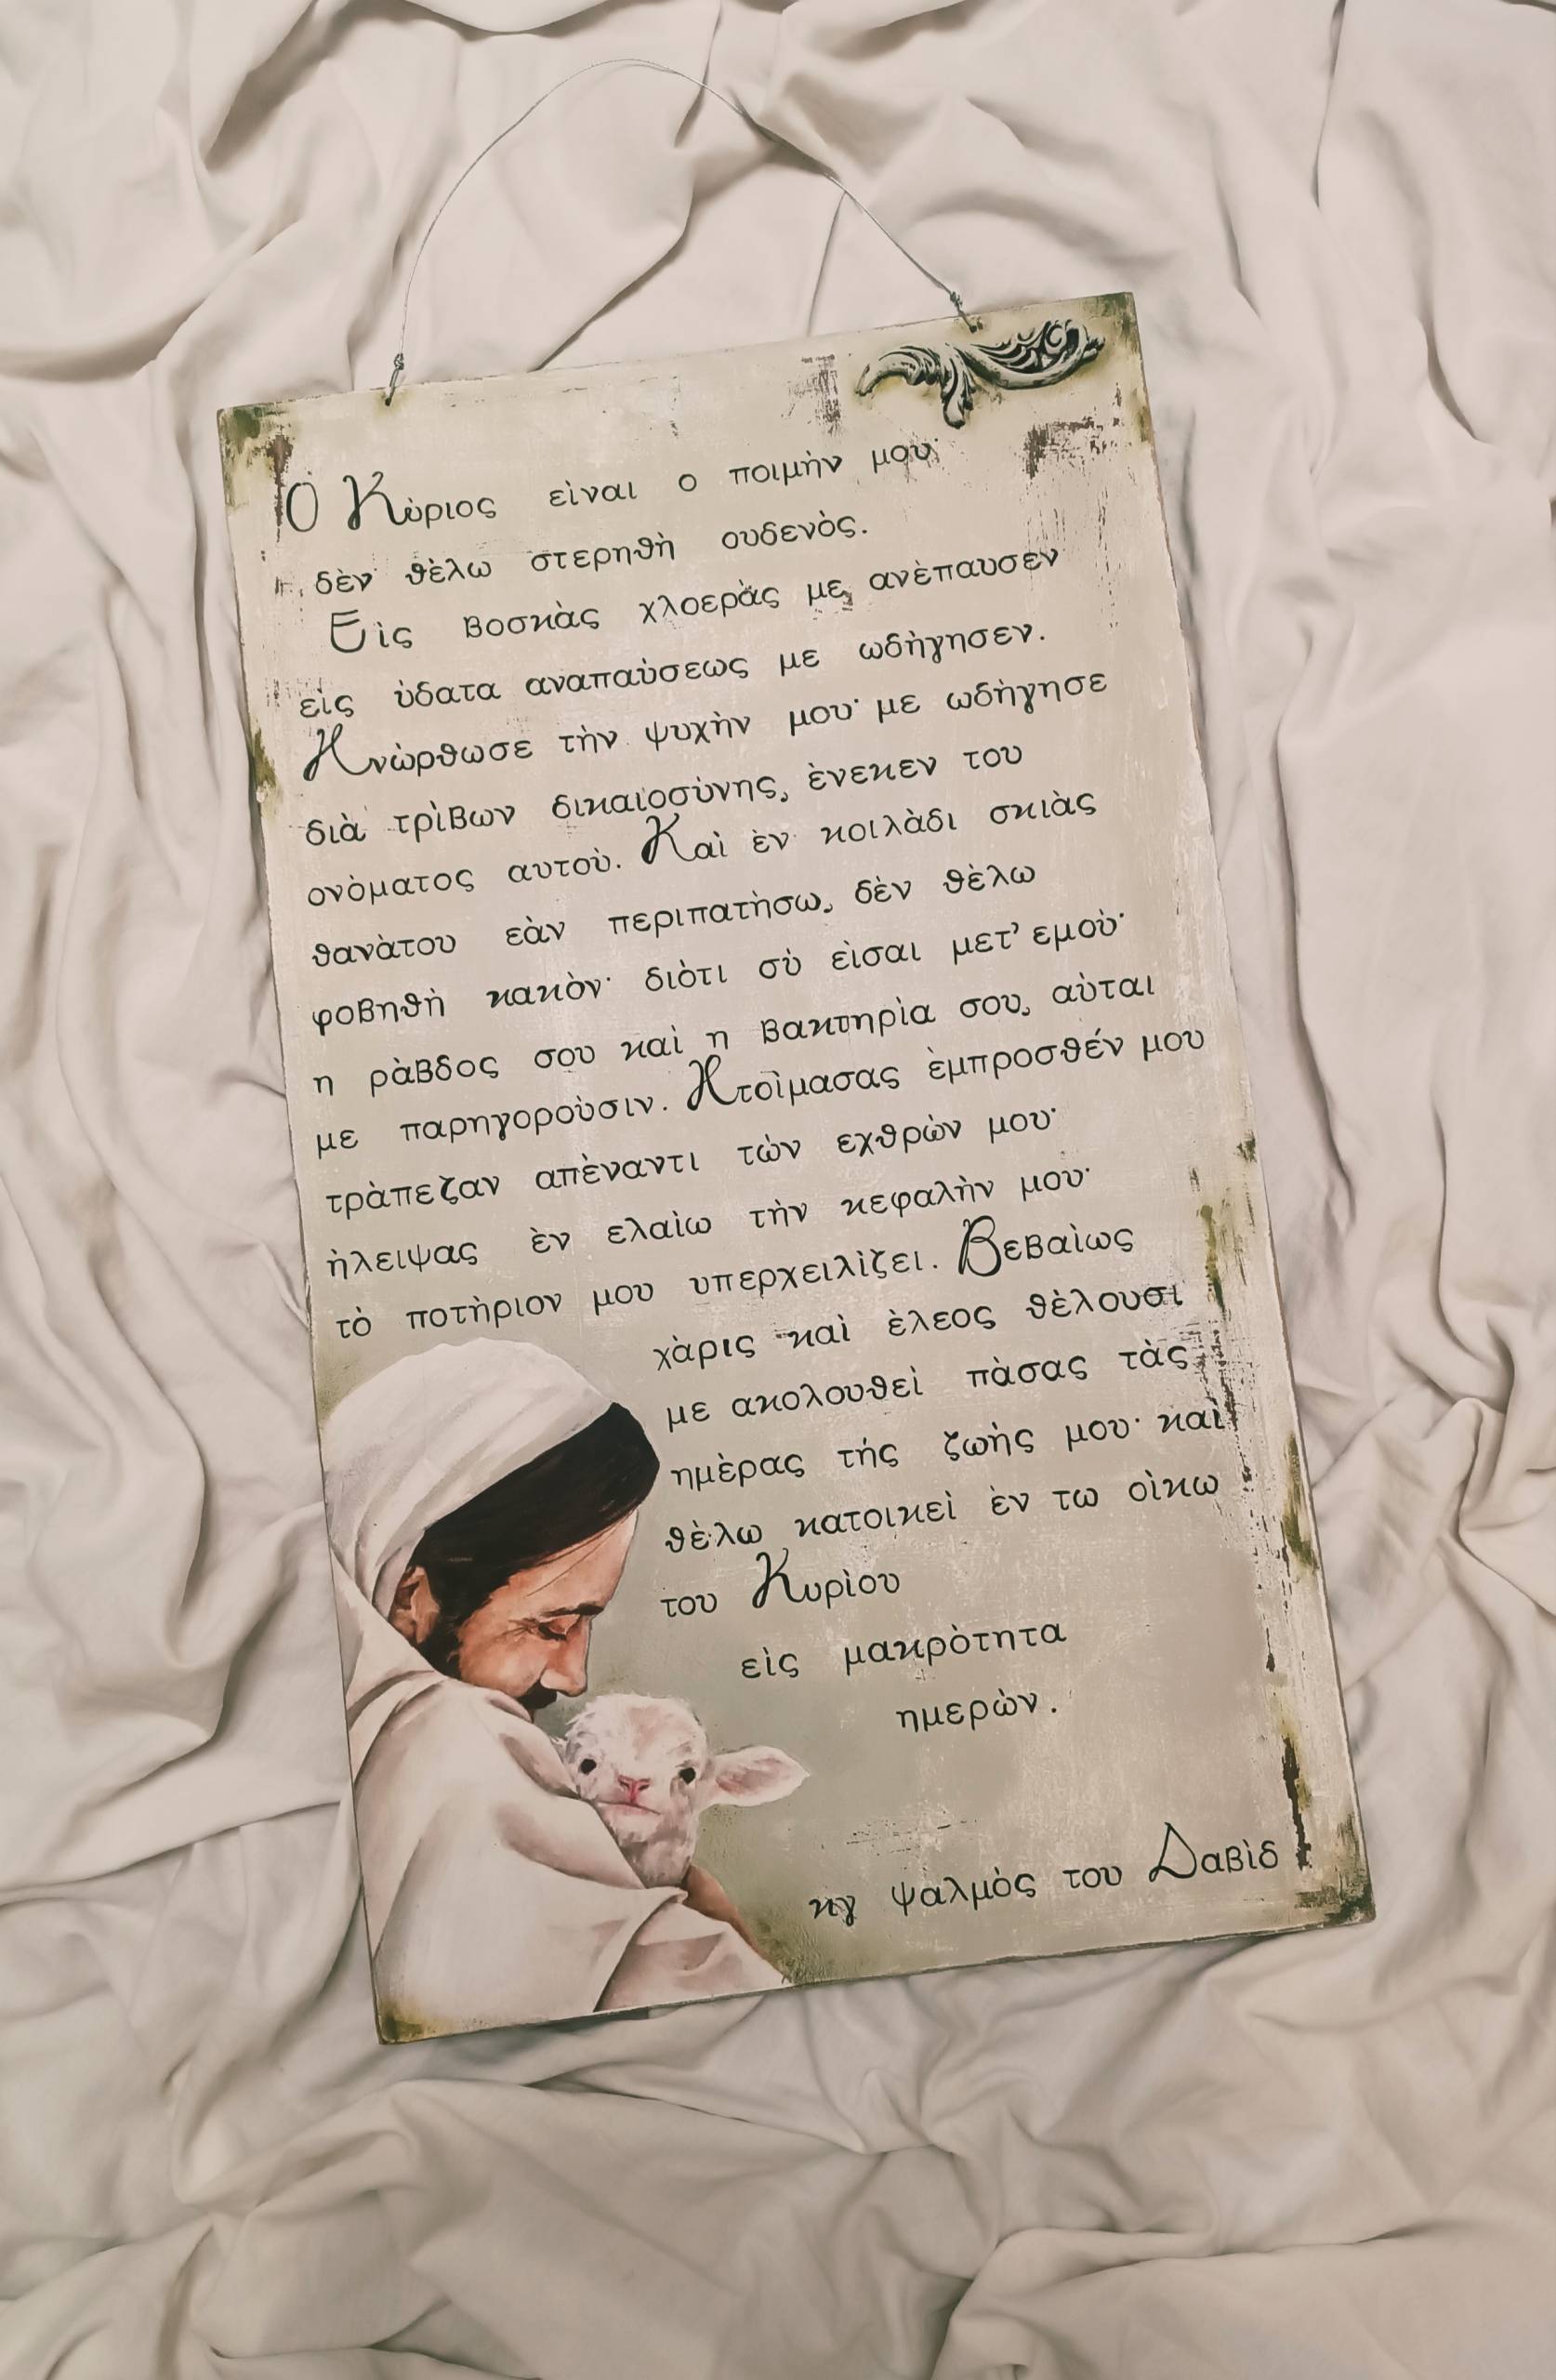 Ὁ Κὺριος εὶναι ο ποιμὴν μου·
δὲν θὲλω στερηθὴ ουδενὸς.
Εὶς βοσκὰς χλοερὰς με, ανὲπαυσεν
εὶς ὺδατα αναπαὺσεως με ωδὴγησεν.
Ηνὼρθωσε τὴν ψυχὴν μου· με ωδὴγησε
διὰ τρὶβων δικαιοσὺνης, ὲνεκεν του
ονὸματος αυτοὺ. Καὶ ὲν κοιλὰδι σκιὰς
θανὰτου εὰν περιπατὴσω, δὲν θὲλω
φοβηθὴ κακὸν· διὸτι σὺ εὶσαι μετ' εμοὺ·
η ρὰβδος σου καὶ η βακτηρὶα σου, αὺται
με παρηγοροὺσιν. Ητοὶμασας ὲμπροσθέν μου
τρὰπεζαν απὲναντι τὼν εχθρὼν μου·
ὴλειψας ὲν ελαὶω τὴν κεφαλὴν μου·
τὸ ποτὴριον μου υπερχειλὶζει. Βεβαὶως
χὰρις καὶ ὲλεος θὲλουσι
με ακολουθεὶ πὰσας τὰς
ημὲρας τὴς ζωὴς μου· καὶ
θὲλω κατοικεὶ ὲν τω οὶκω
του Κυρὶου
εὶς μακρὸτητα
ημερὼν.
κγ ψαλμὸς του Δαβὶδ